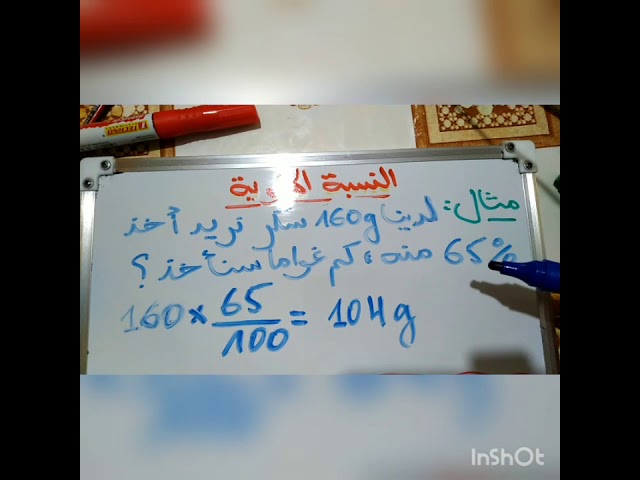 النسبة المئوية
مثال: لدينا 160g سكر نريد أخذ
65% منه، كم غراما سنأخذ؟
160 × 65/100 = 104g
InShOt